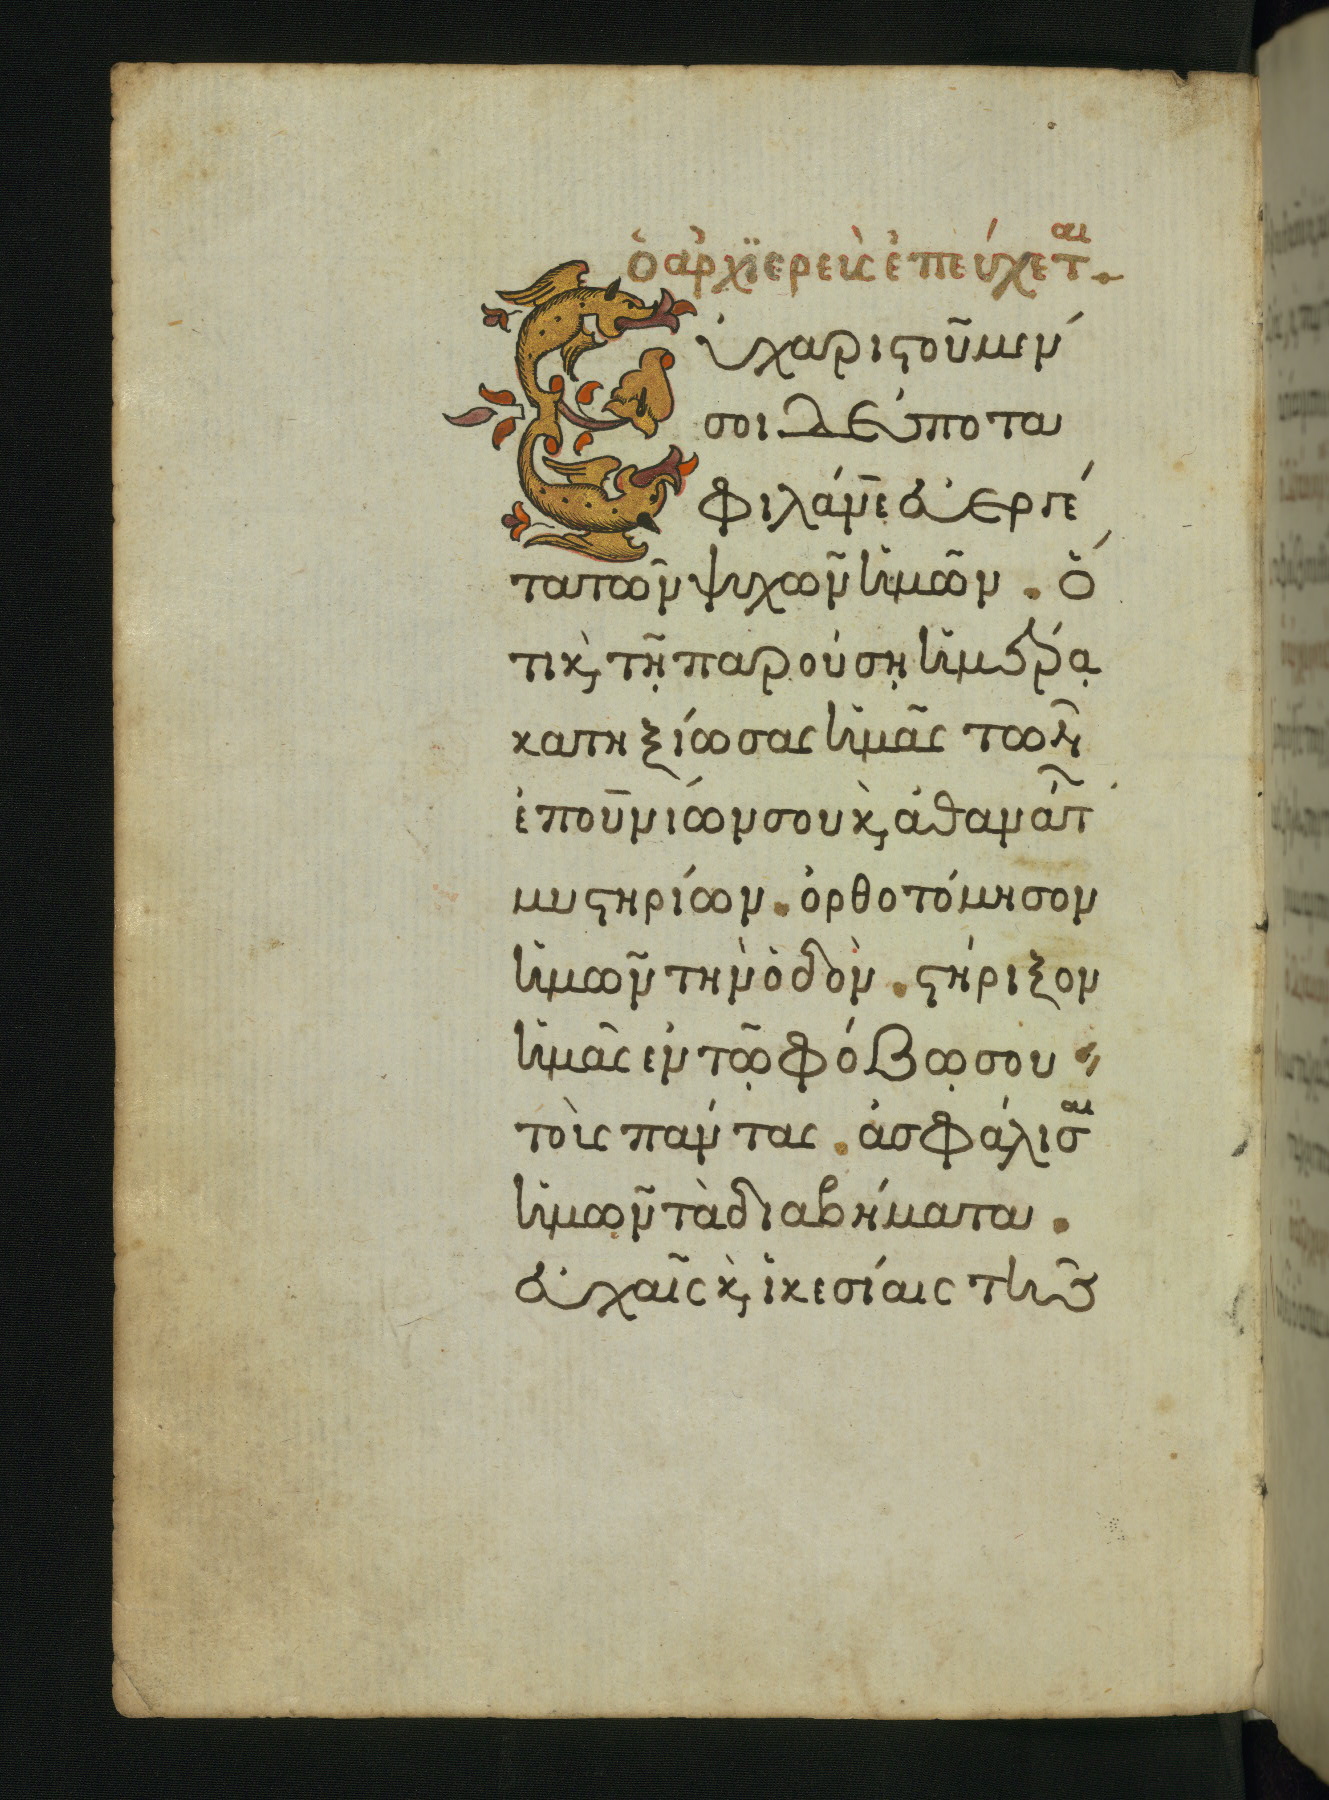 ὁ ἀρχϊερεὺς ἐπεύχεται
Εὐχαριστοῦμέν
σοι δέσποτα
φιλάνε εὐεργέ
τα τῶν ψυχῶν ἡμῶν. ὅ
τι κ, τῇ παρούσῃ ἡμέρᾳ
κατηξίωσας ἡμᾶς τῶν
ἐπουνίων σου κ, ἀθανάτ
μυστηρίων. ὀρθοτόμησον
ἡμῶν τὴν ὁδὸν. στήριξον
ἡμᾶς ἐν τῷ φόβῳ σου
τοὺς πάντας. ἀσφάλισαι
ἡμῶν τὰ διαβήματα.
εὐχαῖς κ, ἱκεσίαις τῆς